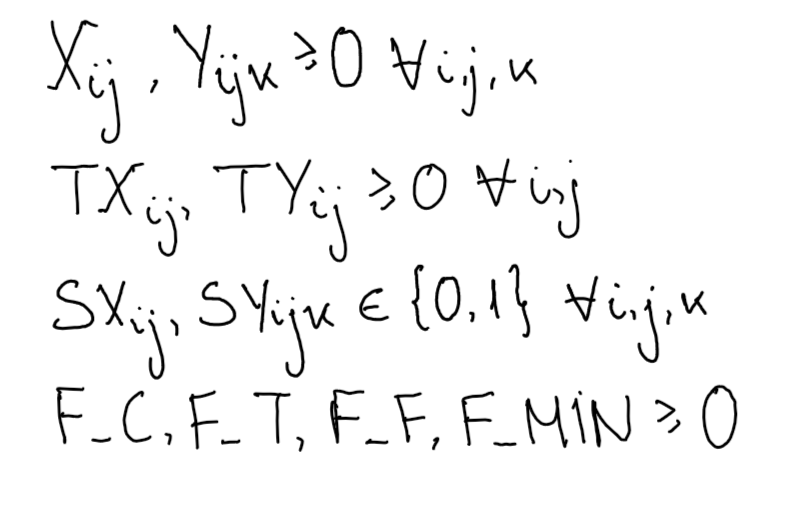 X_{ij}, Y_{ijk} ⩾ 0 ∀ i,j,k
TX_{ij}, TY_{ij} ⩾ 0 ∀ i,j
SX_{ij}, SY_{ijk} ∈ {0,1} ∀ i,j,k
F_C, F_T, F_F, F_MIN ⩾ 0